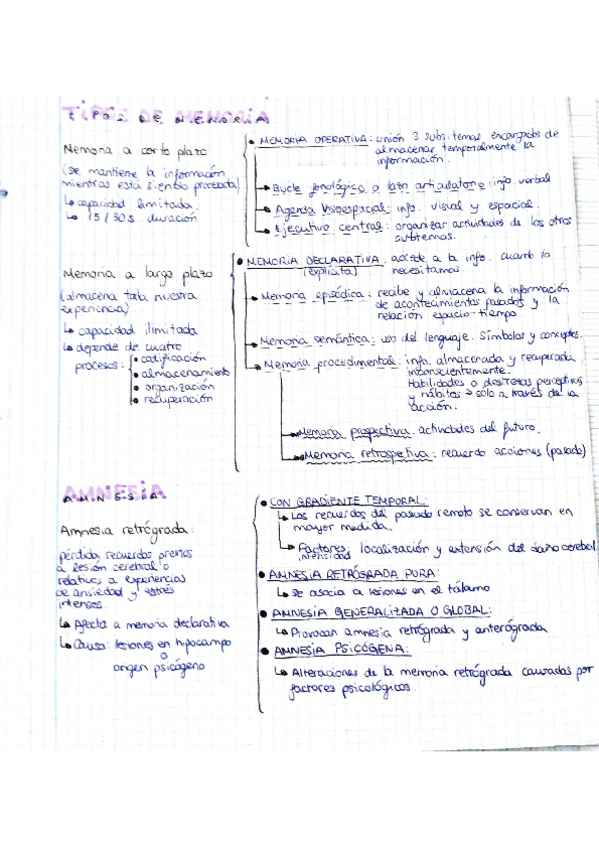 TIPOS DE MEMORIA
Memoria a corto plazo
(se mantiene la información
mientras está siendo procesada)
↳ capacidad limitada.
↳ 15/30s duración
• MEMORIA OPERATIVA: unión 3 subsistemas encargados de
almacenar temporalmente la
información.
Bucle fonológico o lazo articulatorio: info verbal
Agenda Visoespacial: info. visual y espacial.
Ejecutivo central: organizar actividades de los otros
subtemas.
Memoria a largo plazo
(almacena toda nuestra
experiencia)
↳ capacidad ilimitada
↳ depende de cuatro
procesos:
• codificación
• almacenamiento
• organización
• recuperación
• MEMORIA DECLARATIVA: accede a la info. cuando lo
(explícita) necesitamos
Memoria episódica: recibe y almacena la información
de acontecimientos pasados y la
relación espacio-tiempo
Memoria semántica: uso del lenguaje. Símbolos y conceptos.
Memoria procedimental: info. almacenada y recuperada
inconscientemente.
Habilidades o destrezas perceptivas
y hábitos → solo a través de la
acción.
Memoria prospectiva: actividades del futuro.
Memoria retrospetiva: recuerdo acciones (pasado)
AMNESIA
Amnesia retrógrada:
pérdida recuerdos previos
a lesión cerebral o
relativos a experiencias
de ansiedad y estrés
intensos.
↳ Afecta a memoria declarativa
↳ Causa: lesiones en hipocampo
o
origen psicógeno
• CON GRADIENTE TEMPORAL:
↳ Los recuerdos del pasado remoto se conservan en
mayor medida.
↳ Factores: localización y extensión del daño cerebral
intensidad
• AMNESIA RETRÓGRADA PURA:
↳ Se asocia a lesiones en el tálamo
• AMNESIA GENERALIZADA O GLOBAL:
↳ Provocan amnesia retrógrada y anterógrada
• AMNESIA PSICÓGENA:
↳ Alteraciones de la memoria retrógrada causadas por
factores psicológicos.